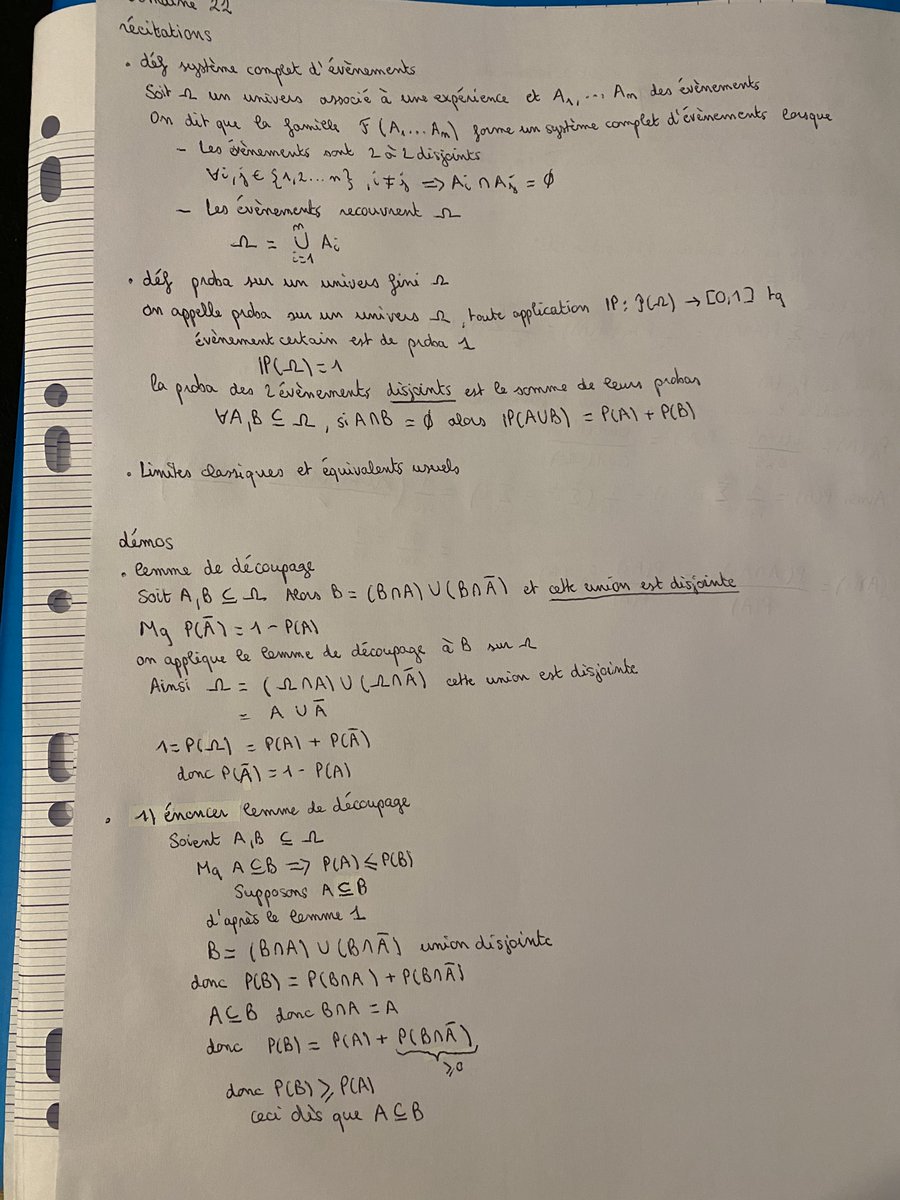 semaine 22
récitations
• déf système complet d'évènements
Soit Ω un univers associé à une expérience et A₁, ... Aₙ des évènements
On dit que la famille F (A₁ ... Aₙ) forme un système complet d'évènements lorsque
- Les évènements sont 2 à 2 disjoints
∀i,j ∈ {1,2...n}, i ≠ j ⟹ Ai ∩ Aj = ∅
- Les évènements recouvrent Ω
Ω = ⋃ᵢ₌₁ⁿ Ai
• déf proba sur un univers fini Ω
on appelle proba sur un univers Ω, toute application IP : P(Ω) → [0,1] tq
évènement certain est de proba 1
IP(Ω) = 1
la proba des 2 évènements disjoints est le somme de leurs probas
∀A,B ⊆ Ω, si A∩B = ∅ alors IP(A∪B) = P(A) + P(B)
• Limites classiques et équivalents usuels
démos
• lemme de découpage
Soit A,B ⊆ Ω Alors B = (B∩A) ∪ (B∩Ā) et cette union est disjointe
Mq P(Ā) = 1 - P(A)
on applique le lemme de découpage à B sur Ω
Ainsi Ω = (Ω∩A) ∪ (Ω∩Ā) cette union est disjointe
= A ∪ Ā
1 = P(Ω) = P(A) + P(Ā)
donc P(Ā) = 1 - P(A)
• 1) énoncer lemme de découpage
Soient A,B ⊆ Ω
Mq A ⊆ B ⟹ P(A) ⩽ P(B)
Supposons A ⊆ B
d'après le lemme 1
B = (B∩A) ∪ (B∩Ā) union disjointe
donc P(B) = P(B∩A) + P(B∩Ā)
A ⊆ B donc B∩A = A
donc P(B) = P(A) + P(B∩Ā)
⩾0
donc P(B) ⩾ P(A)
ceci dès que A ⊆ B